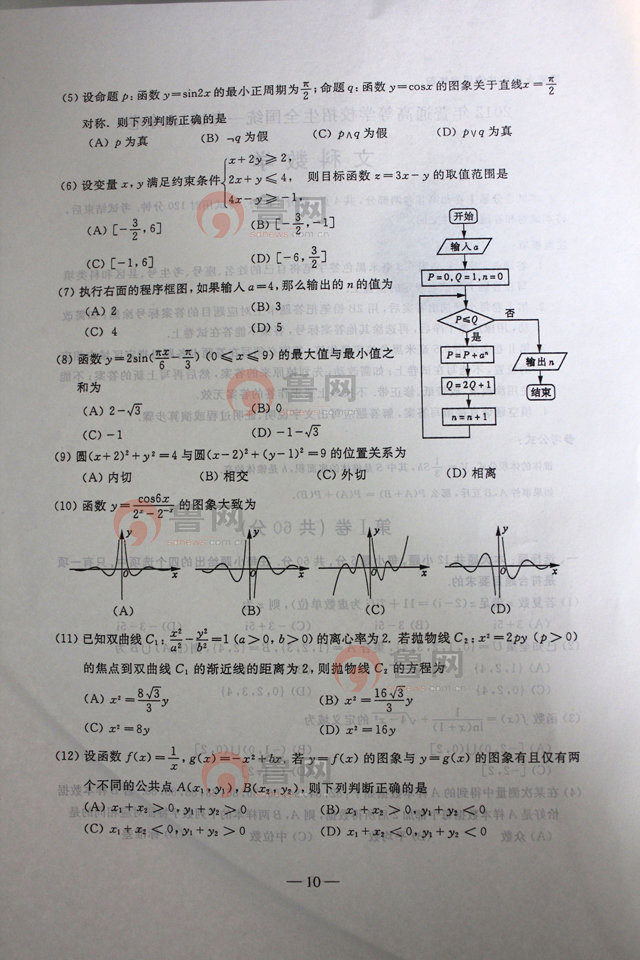 (5) 设命题 p:函数 y=sin2x 的最小正周期为 π/2;命题 q:函数 y=cosx 的图象关于直线 x=π/2
对称.则下列判断正确的是
(A) p 为真 (B) ¬q 为假 (C) p∧q 为假 (D) p∨q 为真
(6) 设变量 x,y 满足约束条件{x+2y⩾2, 2x+y⩽4, 4x-y⩾-1, 则目标函数 z=3x-y 的取值范围是
(A) [-3/2,6] (B) [-3/2,-1]
(C) [-1,6] (D) [-6,3/2]
(7) 执行右面的程序框图,如果输入 a=4,那么输出的 n 的值为
(A) 2 (B) 3
(C) 4 (D) 5
开始
输入 a
P=0,Q=1,n=0
P⩽Q 否
是
P=P+aⁿ 输出 n
Q=2Q+1 结束
n=n+1
(8) 函数 y=2sin(πx/6-π/3)(0⩽x⩽9) 的最大值与最小值之
和为
(A) 2-√3 (B) 0
(C) -1 (D) -1-√3
(9) 圆(x+2)²+y²=4 与圆(x-2)²+(y-1)²=9 的位置关系为
(A) 内切 (B) 相交 (C) 外切 (D) 相离
(10) 函数 y=cos6x/(2ˣ-2⁻ˣ) 的图象大致为
y y y y
O x O x O x O x
(A) (B) (C) (D)
(11) 已知双曲线 C₁:x²/a²-y²/b²=1 (a>0,b>0) 的离心率为 2. 若抛物线 C₂:x²=2py (p>0)
的焦点到双曲线 C₁ 的渐近线的距离为 2,则抛物线 C₂ 的方程为
(A) x²=8√3/3 y (B) x²=16√3/3 y
(C) x²=8y (D) x²=16y
(12) 设函数 f(x)=1/x,g(x)=-x²+bx. 若 y=f(x) 的图象与 y=g(x) 的图象有且仅有两
个不同的公共点 A(x₁,y₁),B(x₂,y₂),则下列判断正确的是
(A) x₁+x₂>0,y₁+y₂>0 (B) x₁+x₂>0,y₁+y₂<0
(C) x₁+x₂<0,y₁+y₂>0 (D) x₁+x₂<0,y₁+y₂<0
— 10 —
鲁网
sdnews.com.cn